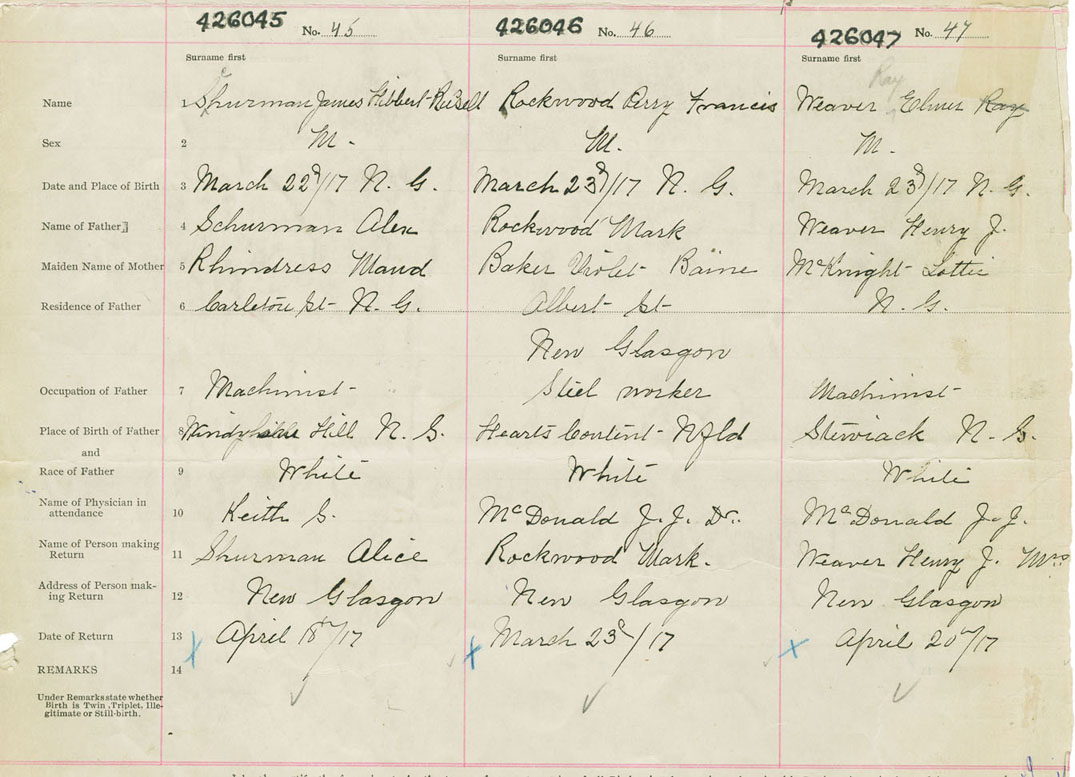 426045 No. 45 426046 No. 46 426047 No. 47
Surname first Surname first Surname first
Ray
Name 1 Shurman James Hibbert Russell Rockwood Perry Francis Weaver Elmer Ray
Sex 2 M. M. M.
Date and Place of Birth 3 March 22d/17 N. G. March 23d/17 N. G. March 23d/17 N. G.
Name of Father 4 Schurman Alex Rockwood Mark Weaver Henry J.
Maiden Name of Mother 5 Rhindress Maud Baker Violet Baine McKnight Lottie
Residence of Father 6 Carleton St N. G. Albert St N. G.
New Glasgow
Occupation of Father 7 Machinist Steel worker Machinist
Place of Birth of Father 8 Hill N. S. Hearts Content Nfld Stewiack N. S.
and
Race of Father 9 White White White
Name of Physician in
attendance 10 Keith S. McDonald J. J. Dr. McDonald J. J.
Name of Person making
Return 11 Shurman Alice Rockwood Mark. Weaver Henry J. Mrs
Address of Person mak-
ing Return 12 New Glasgow New Glasgow New Glasgow
Date of Return 13 April 18th/17 March 23d/17 April 20th/17
REMARKS 14
Under Remarks state whether
Birth is Twin, Triplet, Ille-
gitimate or Still-birth.